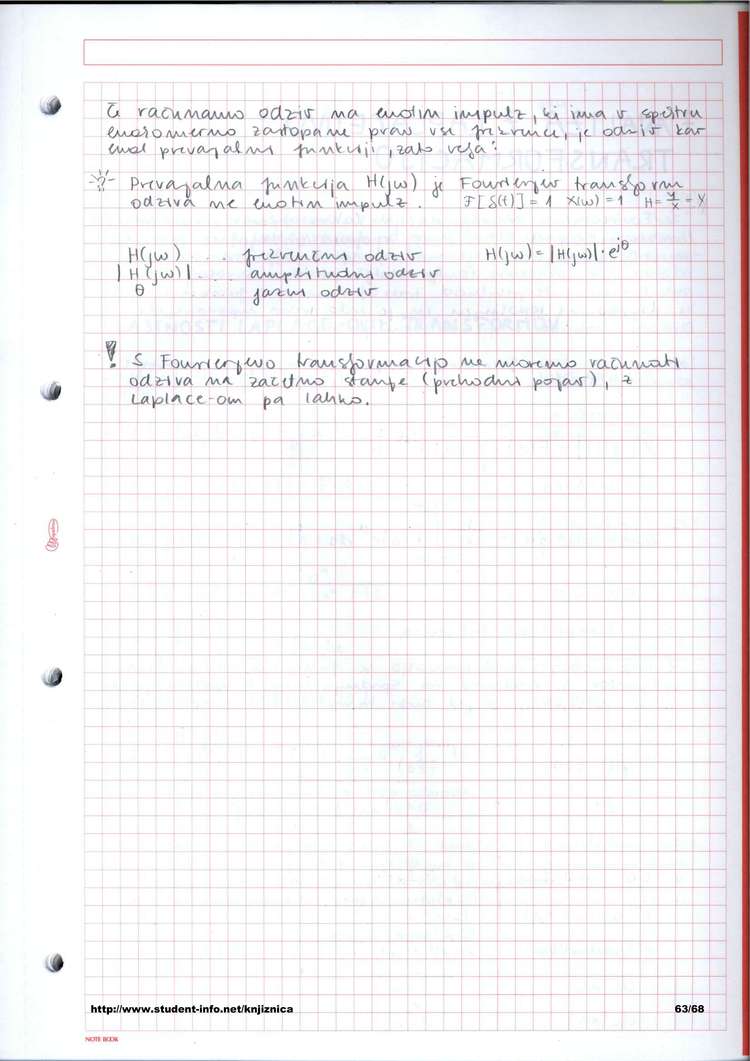 Če računamo odziv na enotin impulz, ki ima v spektru
enakomerno zastopane prav vse frekvence, je odziv kar
enak prevajalni funkciji, zato velja:
Prevajalna funkcija H(jω) je Fourierjev transform
odziva na enotin impulz. F[δ(t)] = 1 X(ω) = 1 H = Y/X = Y
H(jω) ... frekvenčni odziv H(jω) = |H(jω)| · e^jθ
|H(jω)| ... amplitudni odziv
θ ... fazni odziv
! S Fourierjevo transformacijo ne moremo računati
odziva na začetno stanje (prehodni pojav), z
Laplace-om pa lahko.
http://www.student-info.net/knjiznica 63/68
NOTE BOOK